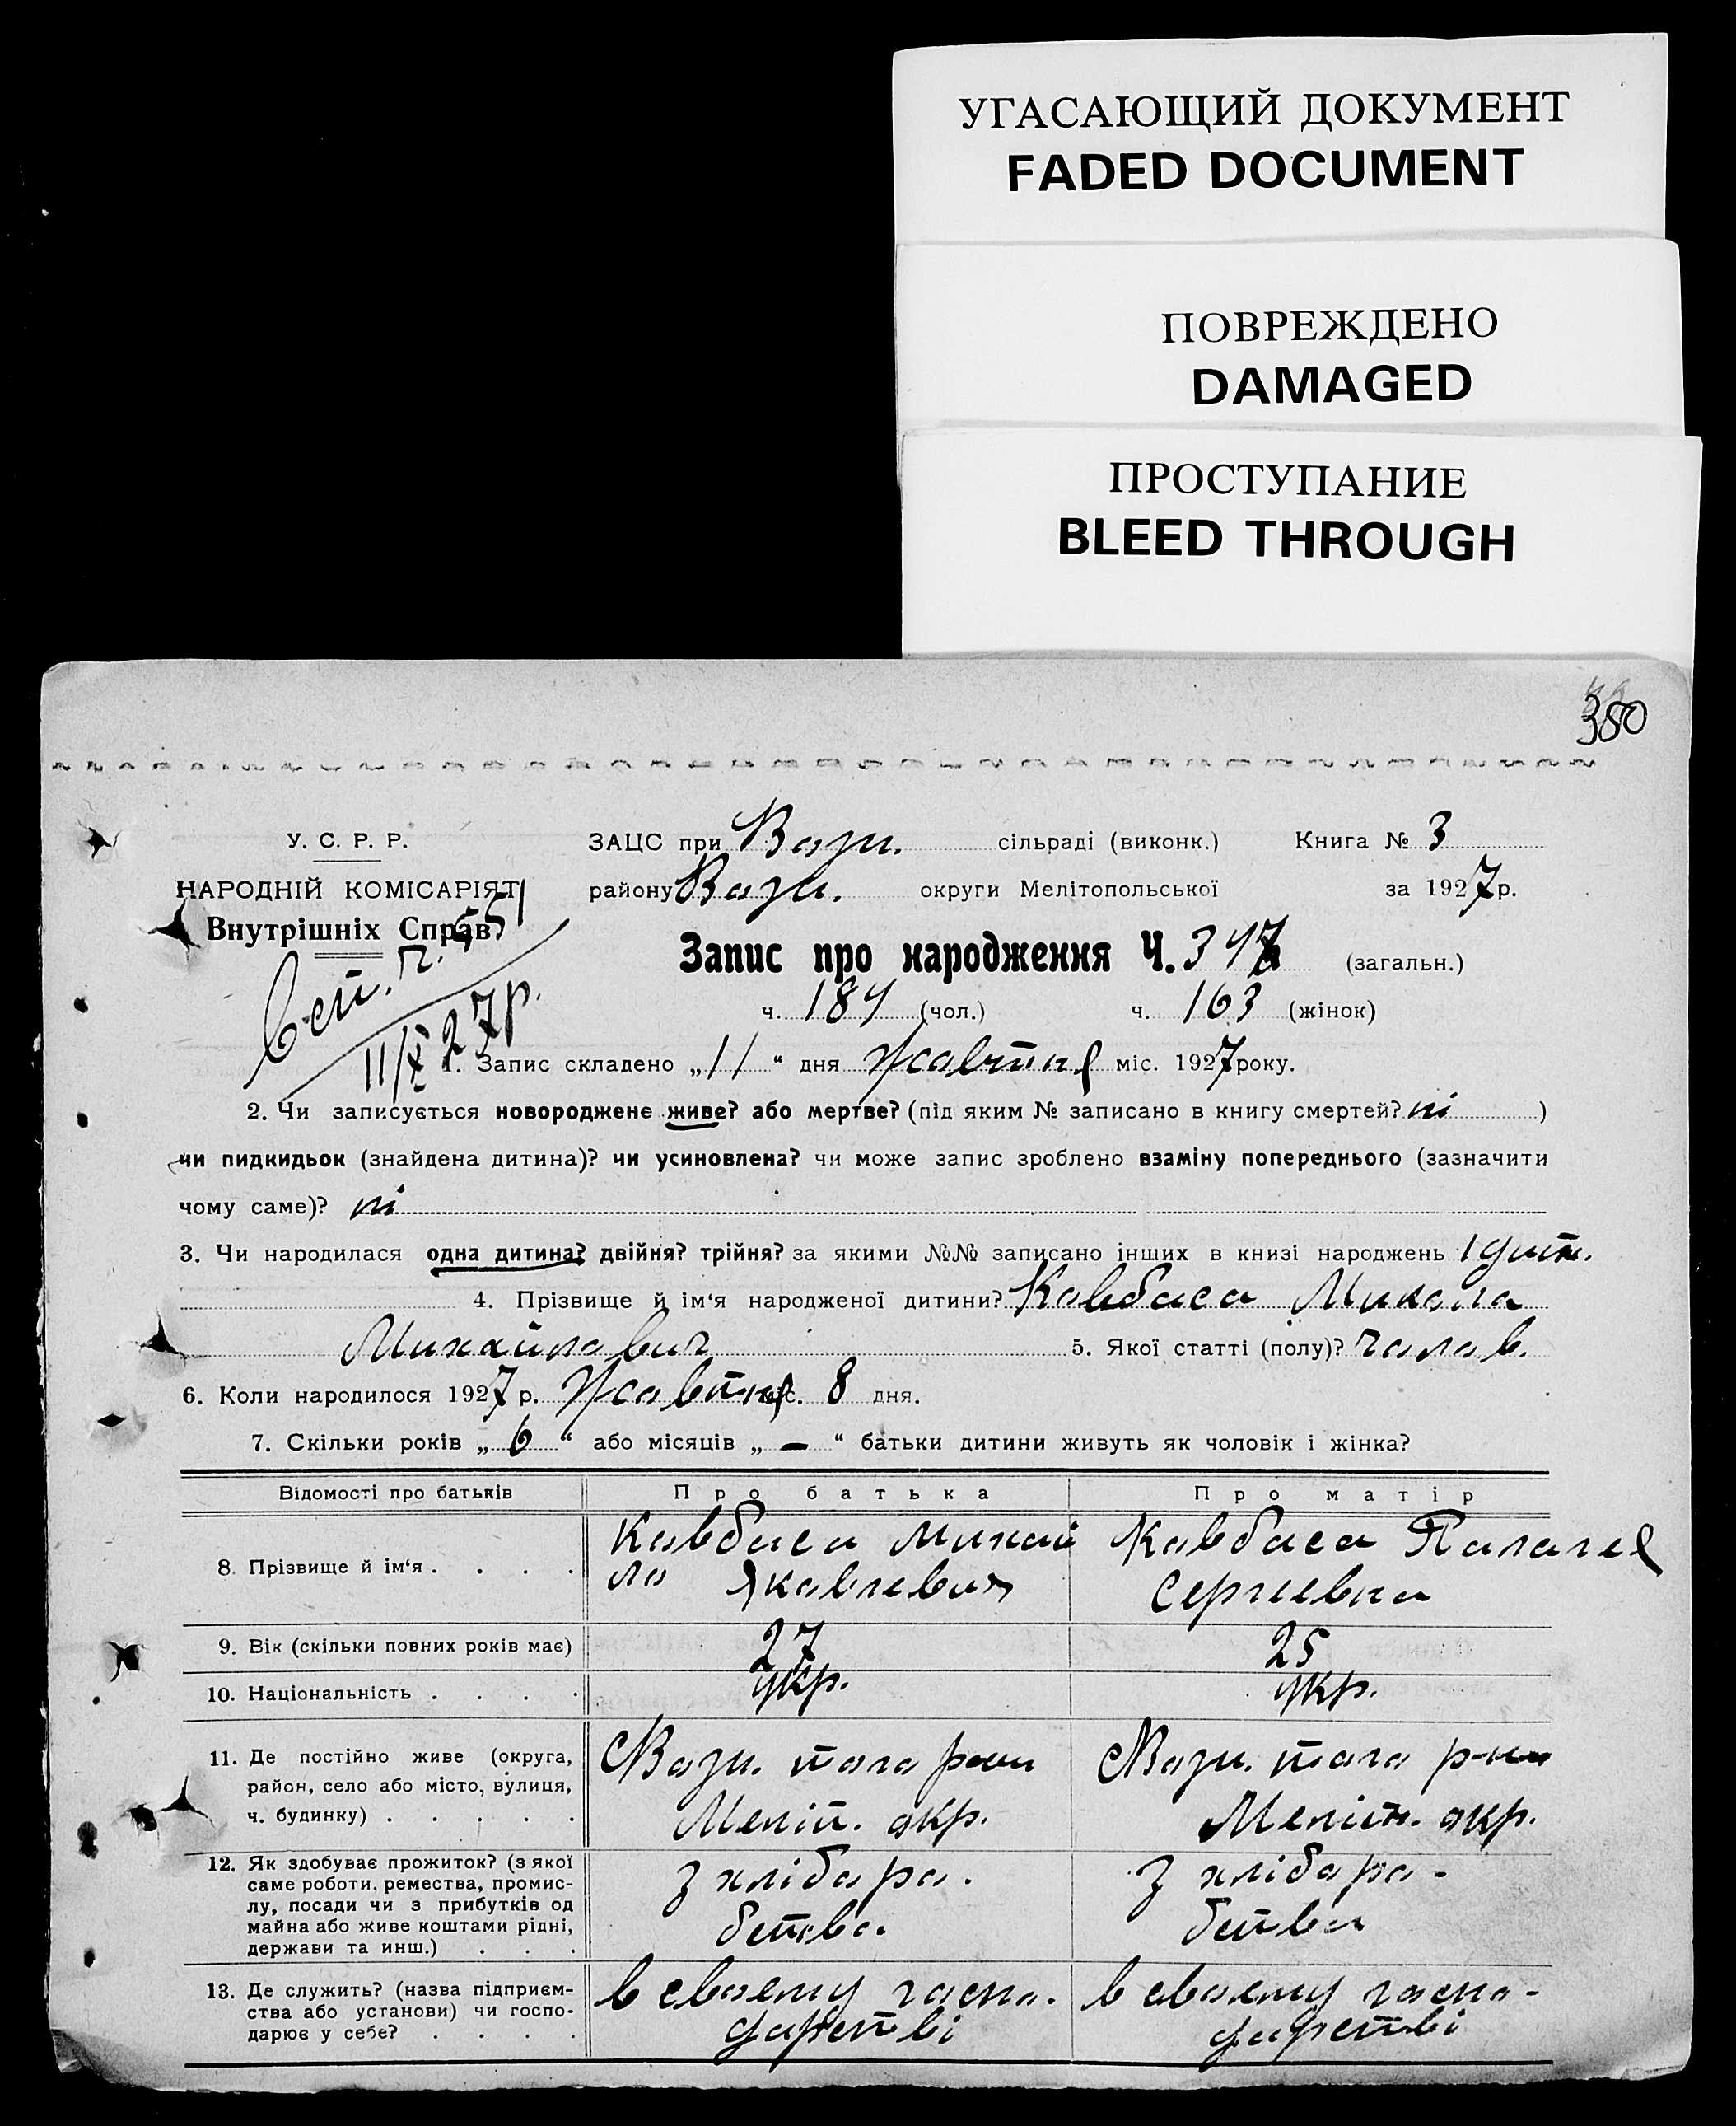 УГАСАЮЩИЙ ДОКУМЕНТ
FADED DOCUMENT
ПОВРЕЖДЕНО
DAMAGED
ПРОСТУПАНИЕ
BLEED THROUGH
380
У. С. Р. Р.
ЗАЦС при Возн. сільраді (виконк.) Книга № 3
НАРОДНІЙ КОМІСАРІЯТ
району Возн. округи Мелітопольської за 1927 р.
Внутрішніх Справ
Запис про народження Ч. 347 (загальн.)
ч. 184 (чол.) ч. 163 (жінок)
11/X 27р.
1. Запис складено „11“ дня Жовтня міс. 1927 року.
2. Чи записується новороджене живе? або мертве? (під яким № записано в книгу смертей? ні )
чи пидкидьок (знайдена дитина)? чи усиновлена? чи може запис зроблено взаміну попереднього (зазначити
чому саме)? ні
3. Чи народилася одна дитина? двійня? трійня? за якими №№ записано інших в книзі народжень 1 дит.
4. Прізвище й ім‘я народженої дитини? Ковбаса Микола
Михайлович 5. Якої статті (полу)? чолов.
6. Коли народилося 1927 р. Жовтня міс. 8 дня.
7. Скільки років „ 6 “ або місяців „ — “ батьки дитини живуть як чоловік і жінка?
Відомості про батьків Про батька Про матір
8. Прізвище й ім‘я . . . .
Ковбаса Михай
ло Яковлевич
Ковбаса Палагея
Сергиевна
9. Вік (скільки повних років має) 27 25
10. Національність . . . . укр. укр.
11. Де постійно живе (округа,
район, село або місто, вулиця,
ч. будинку) . . . . .
Возн. того р-ну
Меліт. окр.
Возн. того р-ну
Меліт. окр.
12. Як здобуває прожиток? (з якої
саме роботи, ремества, промис-
лу, посади чи з прибутків од
майна або живе коштами рідні,
держави та инш.) . . .
з хлібора-
бства
з хлібора-
бства
13. Де служить? (назва підприєм-
ства або установи) чи госпо-
дарює у себе? . . . .
в своєму госпо-
дарстві
в своєму госпо-
дарстві